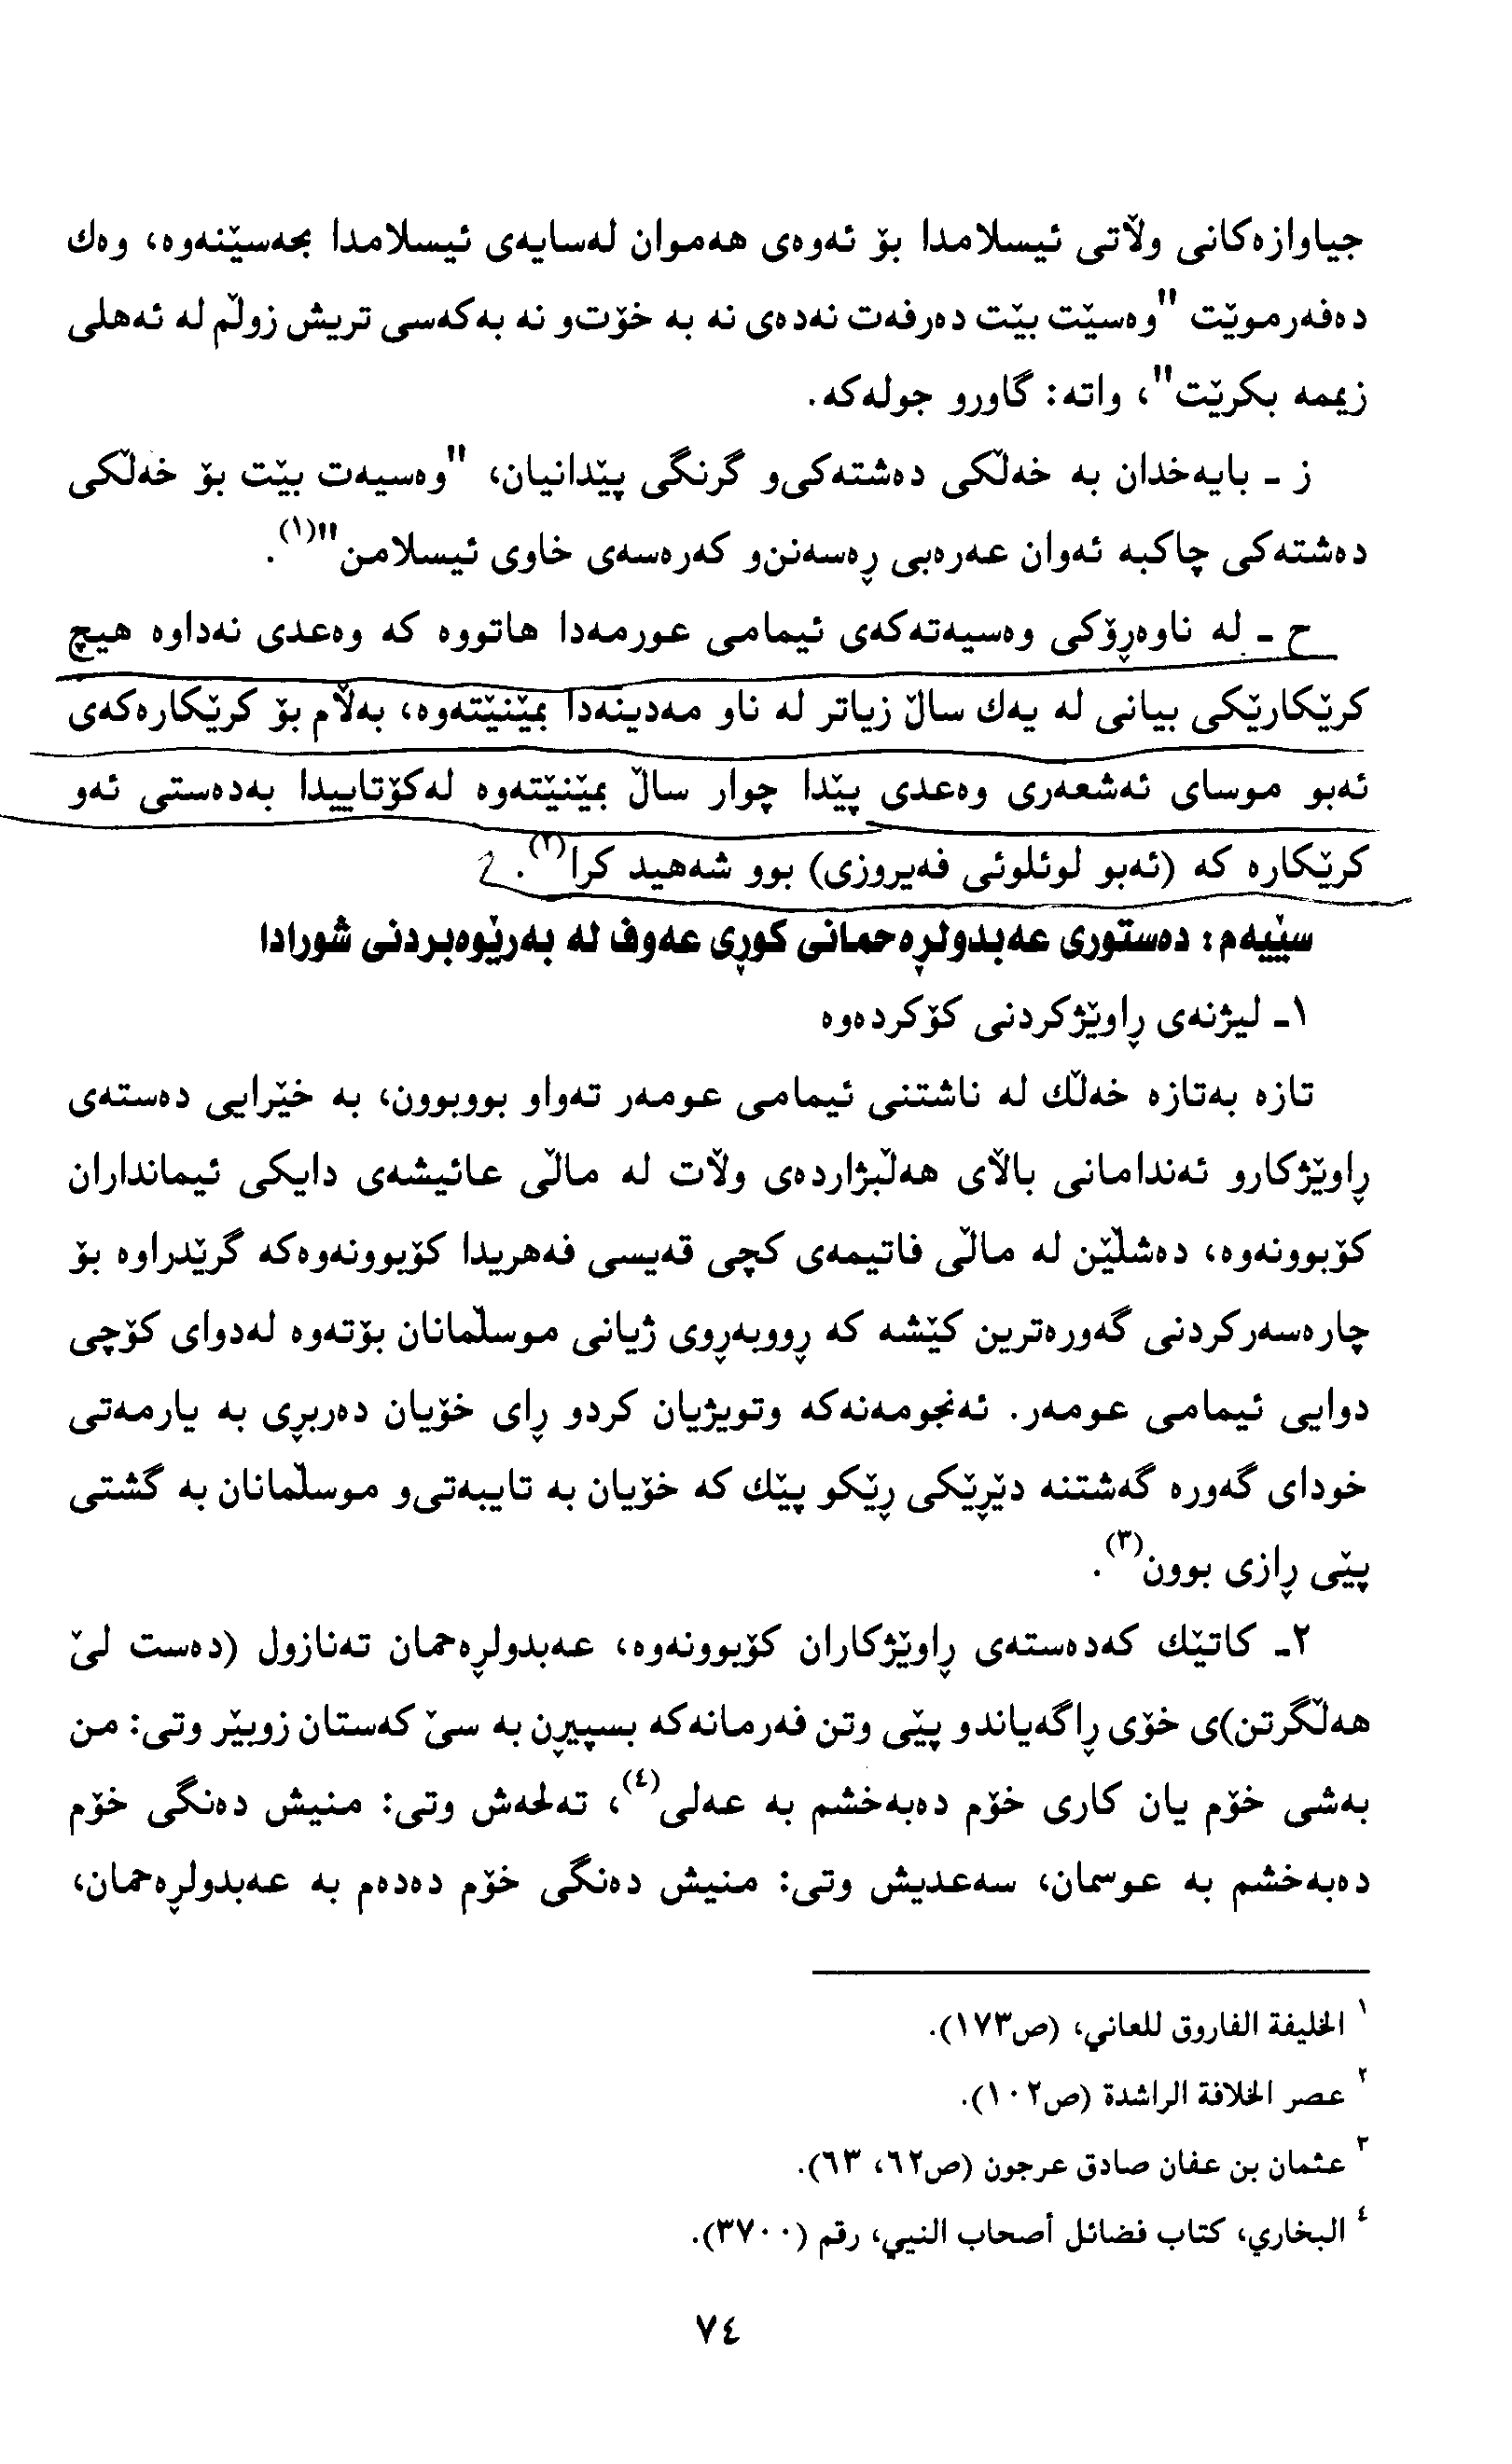 جیاوازەکانی وڵاتی ئیسلامدا بۆ ئەوەی هەموان لەسایەی ئیسلامدا بحەسێنەوە، وەك
دەفەرموێت "وەسێت بێت دەرفەت نەدەی نە بە خۆت‌و نە بەکەسی تریش زوڵم لە ئەهلی
زیممە بکرێت"، واتە: گاورو جولەکە.
ز - بایەخدان بە خەڵکی دەشتەکی‌و گرنگی پێدانیان، "وەسیەت بێت بۆ خەڵکی
دەشتەکی چاکبە ئەوان عەرەبی ڕەسەنن‌و کەرەسەی خاوی ئیسلامن"(١).
ح - لە ناوەڕۆکی وەسیەتەکەی ئیمامی عورمەدا هاتووە کە وەعدی نەداوە هیچ
کرێکارێکی بیانی لە یەك ساڵ زیاتر لە ناو مەدینەدا بمێنێتەوە، بەڵام بۆ کرێکارەکەی
ئەبو موسای ئەشعەری وەعدی پێدا چوار ساڵ بمێنێتەوە لەکۆتاییدا بەدەستی ئەو
کرێکارە کە (ئەبو لوئلوئی فەیروزی) بوو شەهید کرا(٢).
سێیەم: دەستوری عەبدولڕەحمانی کوڕی عەوف لە بەرێوەبردنی شورادا
١- لیژنەی ڕاوێژکردنی کۆکردەوە
تازە بەتازە خەڵك لە ناشتنی ئیمامی عومەر تەواو بووبوون، بە خێرایی دەستەی
ڕاوێژکارو ئەندامانی باڵای هەڵبژاردەی وڵات لە ماڵی عائیشەی دایکی ئیمانداران
کۆبوونەوە، دەشڵێن لە ماڵی فاتیمەی کچی قەیسی فەهریدا کۆبوونەوەکە گرێدراوە بۆ
چارەسەرکردنی گەورەترین کێشە کە ڕووبەڕوی ژیانی موسڵمانان بۆتەوە لەدوای کۆچی
دوایی ئیمامی عومەر. ئەنجومەنەکە وتویژیان کردو ڕای خۆیان دەربڕی بە یارمەتی
خودای گەورە گەشتنە دێڕێکی ڕێکو پێك کە خۆیان بە تایبەتی‌و موسڵمانان بە گشتی
پێی ڕازی بوون(٣).
٢- کاتێك کەدەستەی ڕاوێژکاران کۆبوونەوە، عەبدولڕەحمان تەنازول (دەست لێ
هەڵگرتن)ی خۆی ڕاگەیاندو پێی وتن فەرمانەکە بسپیرن بە سێ کەستان زوبێر وتی: من
بەشی خۆم یان کاری خۆم دەبەخشم بە عەلی(٤)، تەلحەش وتی: منیش دەنگی خۆم
دەبەخشم بە عوسمان، سەعدیش وتی: منیش دەنگی خۆم دەدەم بە عەبدولڕەحمان،
١ الخليفة الفاروق للعاني، (ص١٧٣).
٢ عصر الخلافة الراشدة (ص١٠٢).
٣ عثمان بن عفان صادق عرجون (ص٦٢، ٦٣).
٤ البخاري، كتاب فضائل أصحاب النبي، رقم (٣٧٠٠).
٧٤